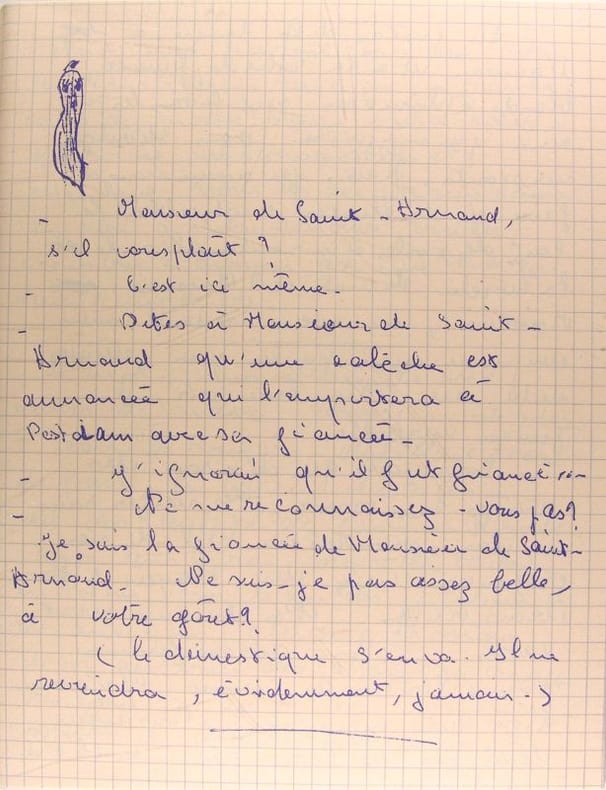 - Monsieur de Saint-Arnaud,
s'il vous plaît ?
- C'est ici même.
- Dites à Monsieur de Saint-
Arnaud qu'une calèche est
annoncée qui l'emportera à
Postdam avec sa fiancée -
- J'ignorais qu'il fut fiancé ...
- Ne me reconnaissez-vous pas ?
Je suis la fiancée de Monsieur de Saint-
Arnaud. Ne suis-je pas assez belle,
à votre goût ?
( le domestique s'en va. Il ne
reviendra, évidemment, jamais. )